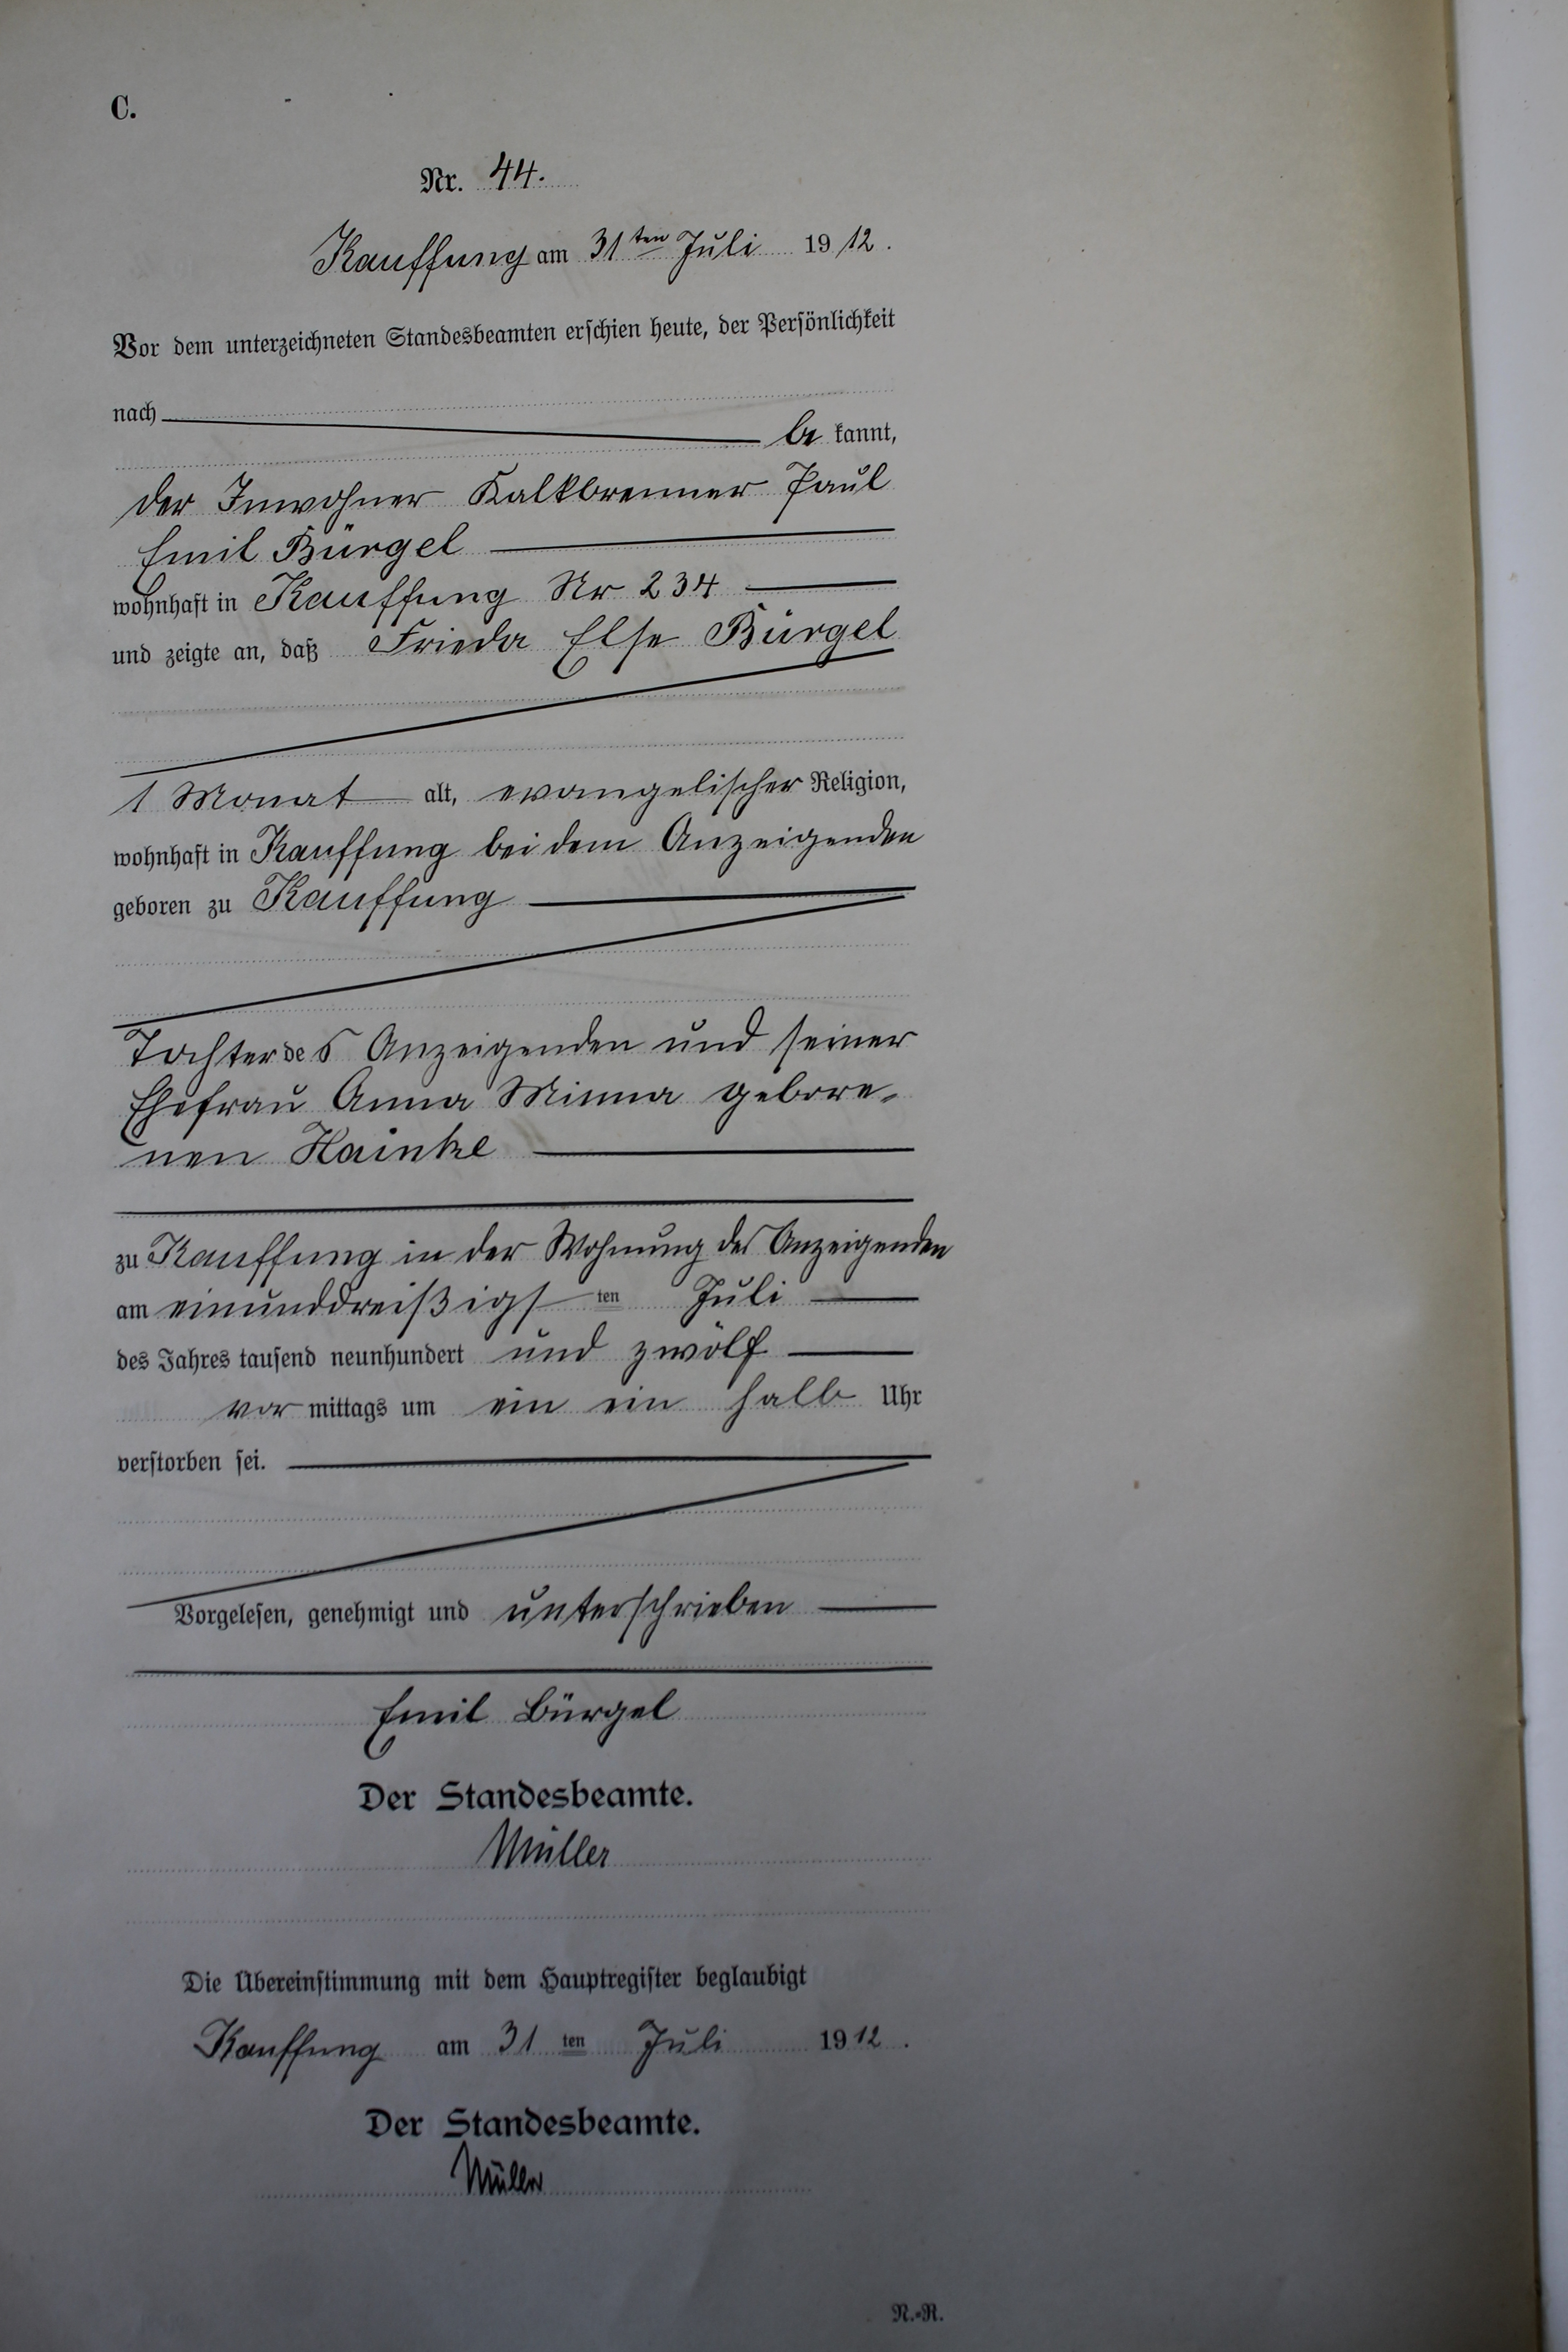 C.
Nr. 44.
Kauffung am 31ten Juli 1912.
Vor dem unterzeichneten Standesbeamten erschien heute, der Persönlichkeit
nach
be kannt,
der Inwohner Kalkbrenner Paul
Emil Bürgel
wohnhaft in Kauffung Nr 234
und zeigte an, daß Frieda Else Bürgel
1 Monat alt, evangelischer Religion,
wohnhaft in Kauffung bei dem Anzeigenden
geboren zu Kauffung
Tochter des Anzeigenden und seiner
Ehefrau Anna Minna gebore-
nen Hainke
zu Kauffung in der Wohnung des Anzeigenden
am einunddreißigsten Juli
des Jahres tausend neunhundert und zwölf
vor mittags um ein ein halb Uhr
verstorben sei.
Vorgelesen, genehmigt und unterschrieben
Emil Bürgel
Der Standesbeamte.
Müller
Die Übereinstimmung mit dem Hauptregister beglaubigt
Kauffung am 31 ten Juli 1912.
Der Standesbeamte.
Müller
N.-R.